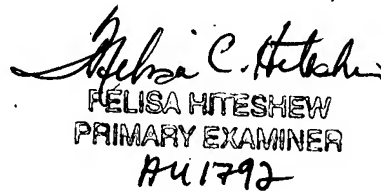 Felisa C. Hiteshew
FELISA HITESHEW
PRIMARY EXAMINER
AU 1792